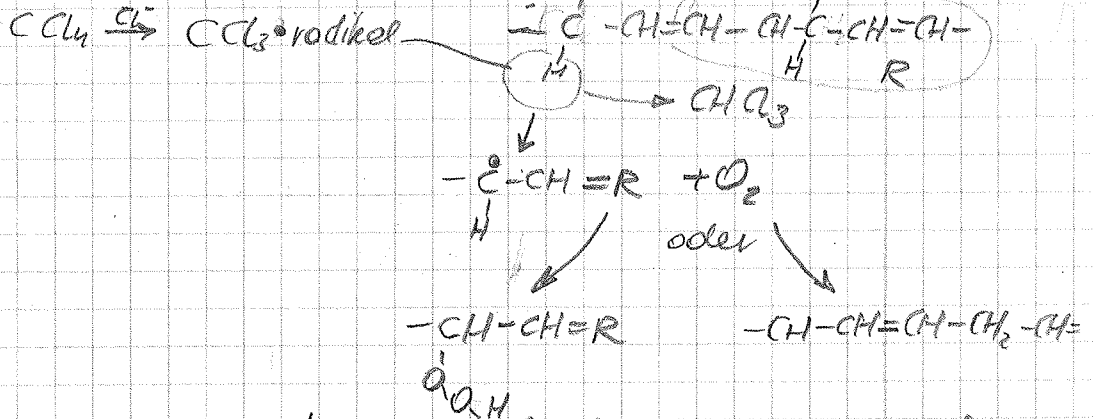 CCl4 Cl- → CCl3•radikal — C - CH=CH - CH - C - CH=CH -
H H R
→ CHCl3
- Ċ - CH = R + O2
H
oder
- CH - CH = R - CH - CH = CH - CH2 - CH =
O
O H